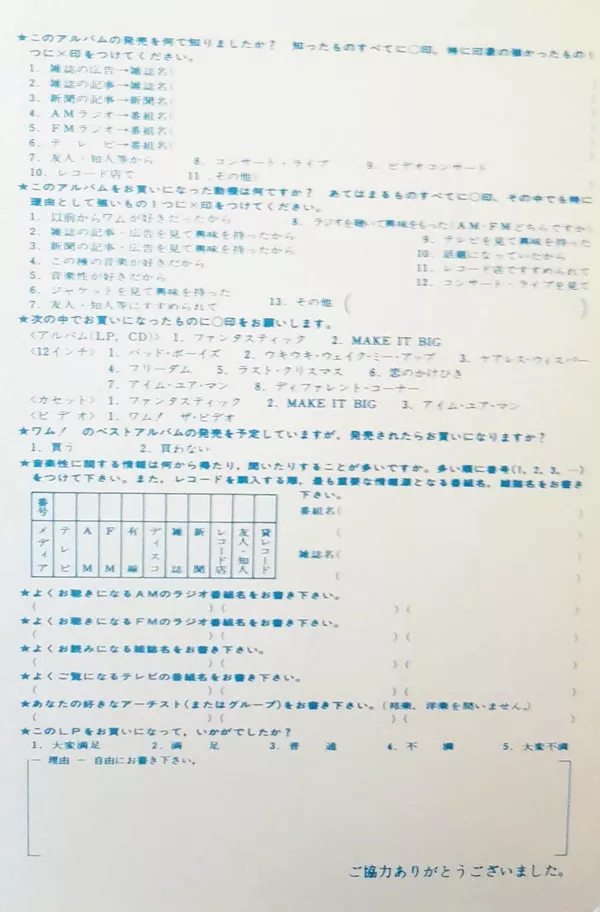 ★このアルバムの発売を何で知りましたか？ 知ったものすべてに○印、特に印象の強かったもの1
つに×印をつけてください。
1．雑誌の広告→雑誌名(
2．雑誌の記事→雑誌名(
3．新聞の記事→新聞名(
4．AMラジオ→番組名(
5．FMラジオ→番組名(
6．テレビ→番組名(
7．友人・知人等から 8．コンサート・ライブ 9．ビデオコンサート
10．レコード店で 11．その他(
★このアルバムをお買いになった動機は何ですか？ あてはまるものすべてに○印、その中でも特に
理由として強いもの1つに×印をつけてください。
1．以前からワムが好きだったから 8．ラジオを聴いて興味をもった(AM・FMどちらですか)
2．雑誌の記事・広告を見て興味を持ったから 9．テレビを見て興味を持った
3．新聞の記事・広告を見て興味を持ったから 10．話題になっていたから
4．この種の音楽が好きだから 11．レコード店ですすめられて
5．音楽性が好きだから 12．コンサート・ライブを見て
6．ジャケットを見て興味を持った
7．友人・知人等にすすめられて 13．その他( )
★次の中でお買いになったものに○印をお願いします。
〈アルバム(LP、CD)〉 1．ファンタスティック 2．MAKE IT BIG
〈12インチ〉 1．バッド・ボーイズ 2．ウキウキ・ウェイク・ミー・アップ 3．ケアレス・ウィスパー
4．フリーダム 5．ラスト・クリスマス 6．恋のかけひき
7．アイム・ユア・マン 8．ディファレント・コーナー
〈カセット〉 1．ファンタスティック 2．MAKE IT BIG 3．アイム・ユア・マン
〈ビデオ〉 1．ワム！ ザ・ビデオ
★ワム！ のベストアルバムの発売を予定していますが、発売されたらお買いになりますか？
1．買う 2．買わない
★音楽性に関する情報は何から得たり、聞いたりすることが多いですか。多い順に番号(1，2，3，…)
をつけて下さい。また、レコードを購入する際、最も重要な情報源となる番組名、雑誌名をお書き
下さい。
番号
メディア テレビ AM FM 有線 ディスコ 雑誌 新聞 レコード店 友人・知人 貸レコード
番組名(
(
雑誌名(
(
★よくお聴きになるAMのラジオ番組名をお書き下さい。
( )( )( )
★よくお聴きになるFMのラジオ番組名をお書き下さい。
( )( )( )
★よくお読みになる雑誌名をお書き下さい。
( )( )( )
★よくご覧になるテレビの番組名をお書き下さい。
( )( )( )
★あなたの好きなアーチスト(またはグループ)をお書き下さい。(邦楽、洋楽を問いません。)
( )( )( )
★このLPをお買いになって、いかがでしたか？
1．大変満足 2．満足 3．普通 4．不満 5．大変不満
─ 理由 ─ 自由にお書き下さい。
ご協力ありがとうございました。